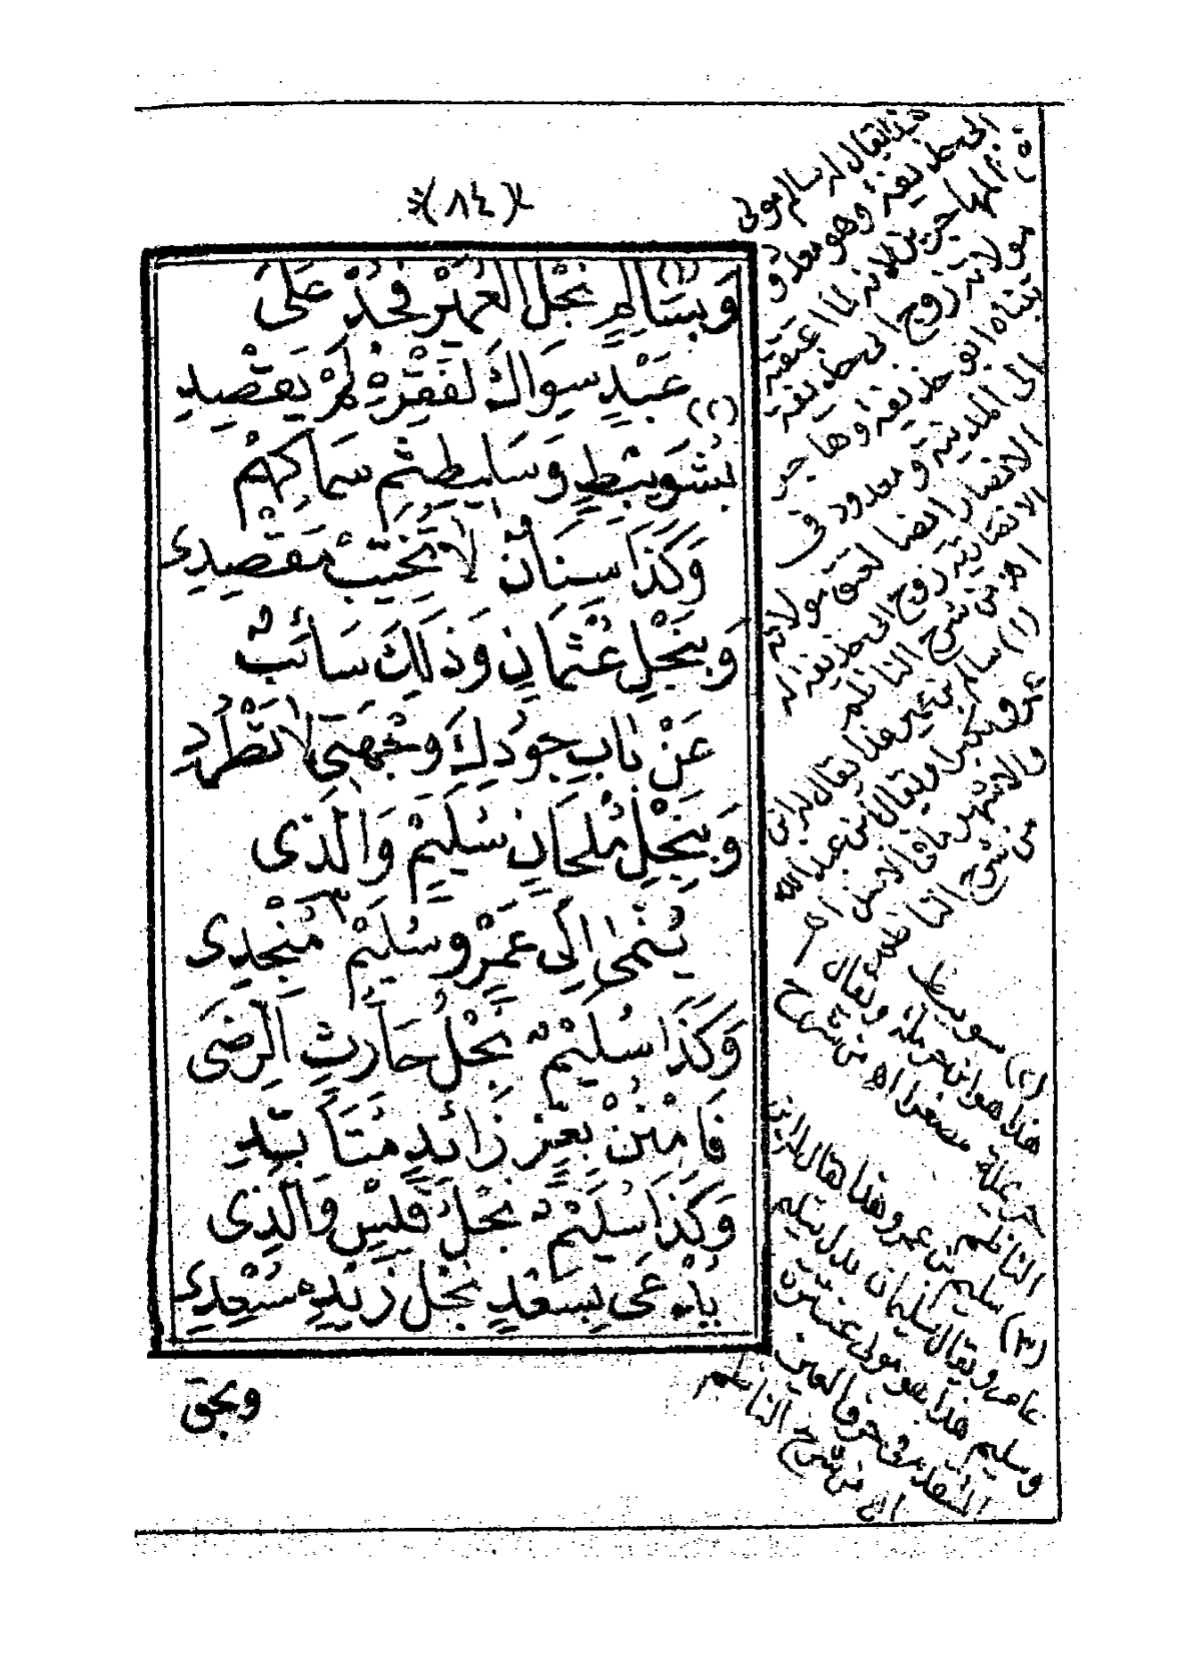 (٨٤)
وَبِسَالِمٍ نَجْلِ الْعُمَيْرِ فَجُدْ عَلَى (١)
عَبْدٍ سِوَاكَ لِفَقْرِهِ لَمْ يَقْصِدِ
بِسُوَيْبِطٍ وَسَلِيطِهِمْ سَمَاكِهِمْ (٢)
وَكَذَا سِنَانٌ لَا تُخَيِّبْ مَقْصِدِى
وَبِنَجْلِ عُثْمَانٍ وَذَلِكَ سَائِبٌ
عَنْ بَابِ جُودِكَ وُجْهَتِى لَا تَطْرُدِ
وَبِنَجْلِ مُلْحَانٍ سُلَيْمٌ وَالَّذِى
يُنْمَى إِلَى عَمْرٍو سُلَيْمٌ مُنْجِدِى ٣
وَكَذَا سُلَيْمٌ نَجْلُ حَارِثٍ الرِّضَى
فَامْنُنْ بِعِزٍّ زَائِدٍ مُتَأَبِّدِ
وَكَذَا سُلَيْمٌ نَجْلُ قَيْسٍ وَالَّذِى
يُدْعَى بِسَعْدٍ نَجْلُ زَيْدِهِ مُسْعِدِى
وبحق
يقال له سالم مولى
ابى حذيفة وهو معدود
فى المهاجرين لانه لما اعتقته
مولاته زوج ابى حذيفة
تبناه ابو حذيفة وهاجر
الى المدينة ومعدود فى
الانصار ايضا لعتق مولاته
الانصارية زوج ابى حذيفة له
اهـ من شرح الناظم
(١) سالم بن عمير هذا يقال له ابن
عمرو مكبرا ويقال ابن عبد الله
والاشهر ما فى الاصل اهـ
من شرح الناظم
(٢) سويبط
هذا هو ابن حرملة ويقال
حريملة مصغرا اهـ من شرح
الناظم
(٣) سليم بن عمرو هذا يقال له ابن
عامر ويقال سليمان بدل سليم
وسليم هذا هو مولى عنترة
المتقدم فى حرف العين
اهـ من شرح الناظم